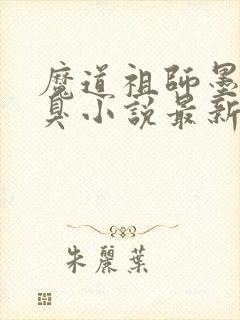 魔道祖師墨
臭小説最新
朱麗葉